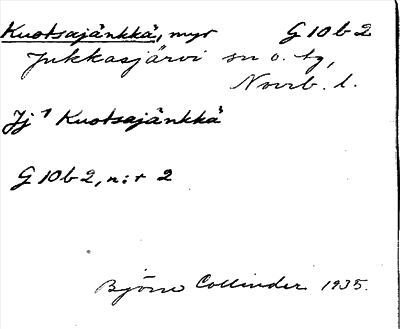 Kuotsajänkkä, myr G 10 b 2
Jukkasjärvi sn o. tg,
Norrb. l.
Jj 1 Kuotsajänkkä
G 10 b 2, n:r 2
Björn Collinder 1935.